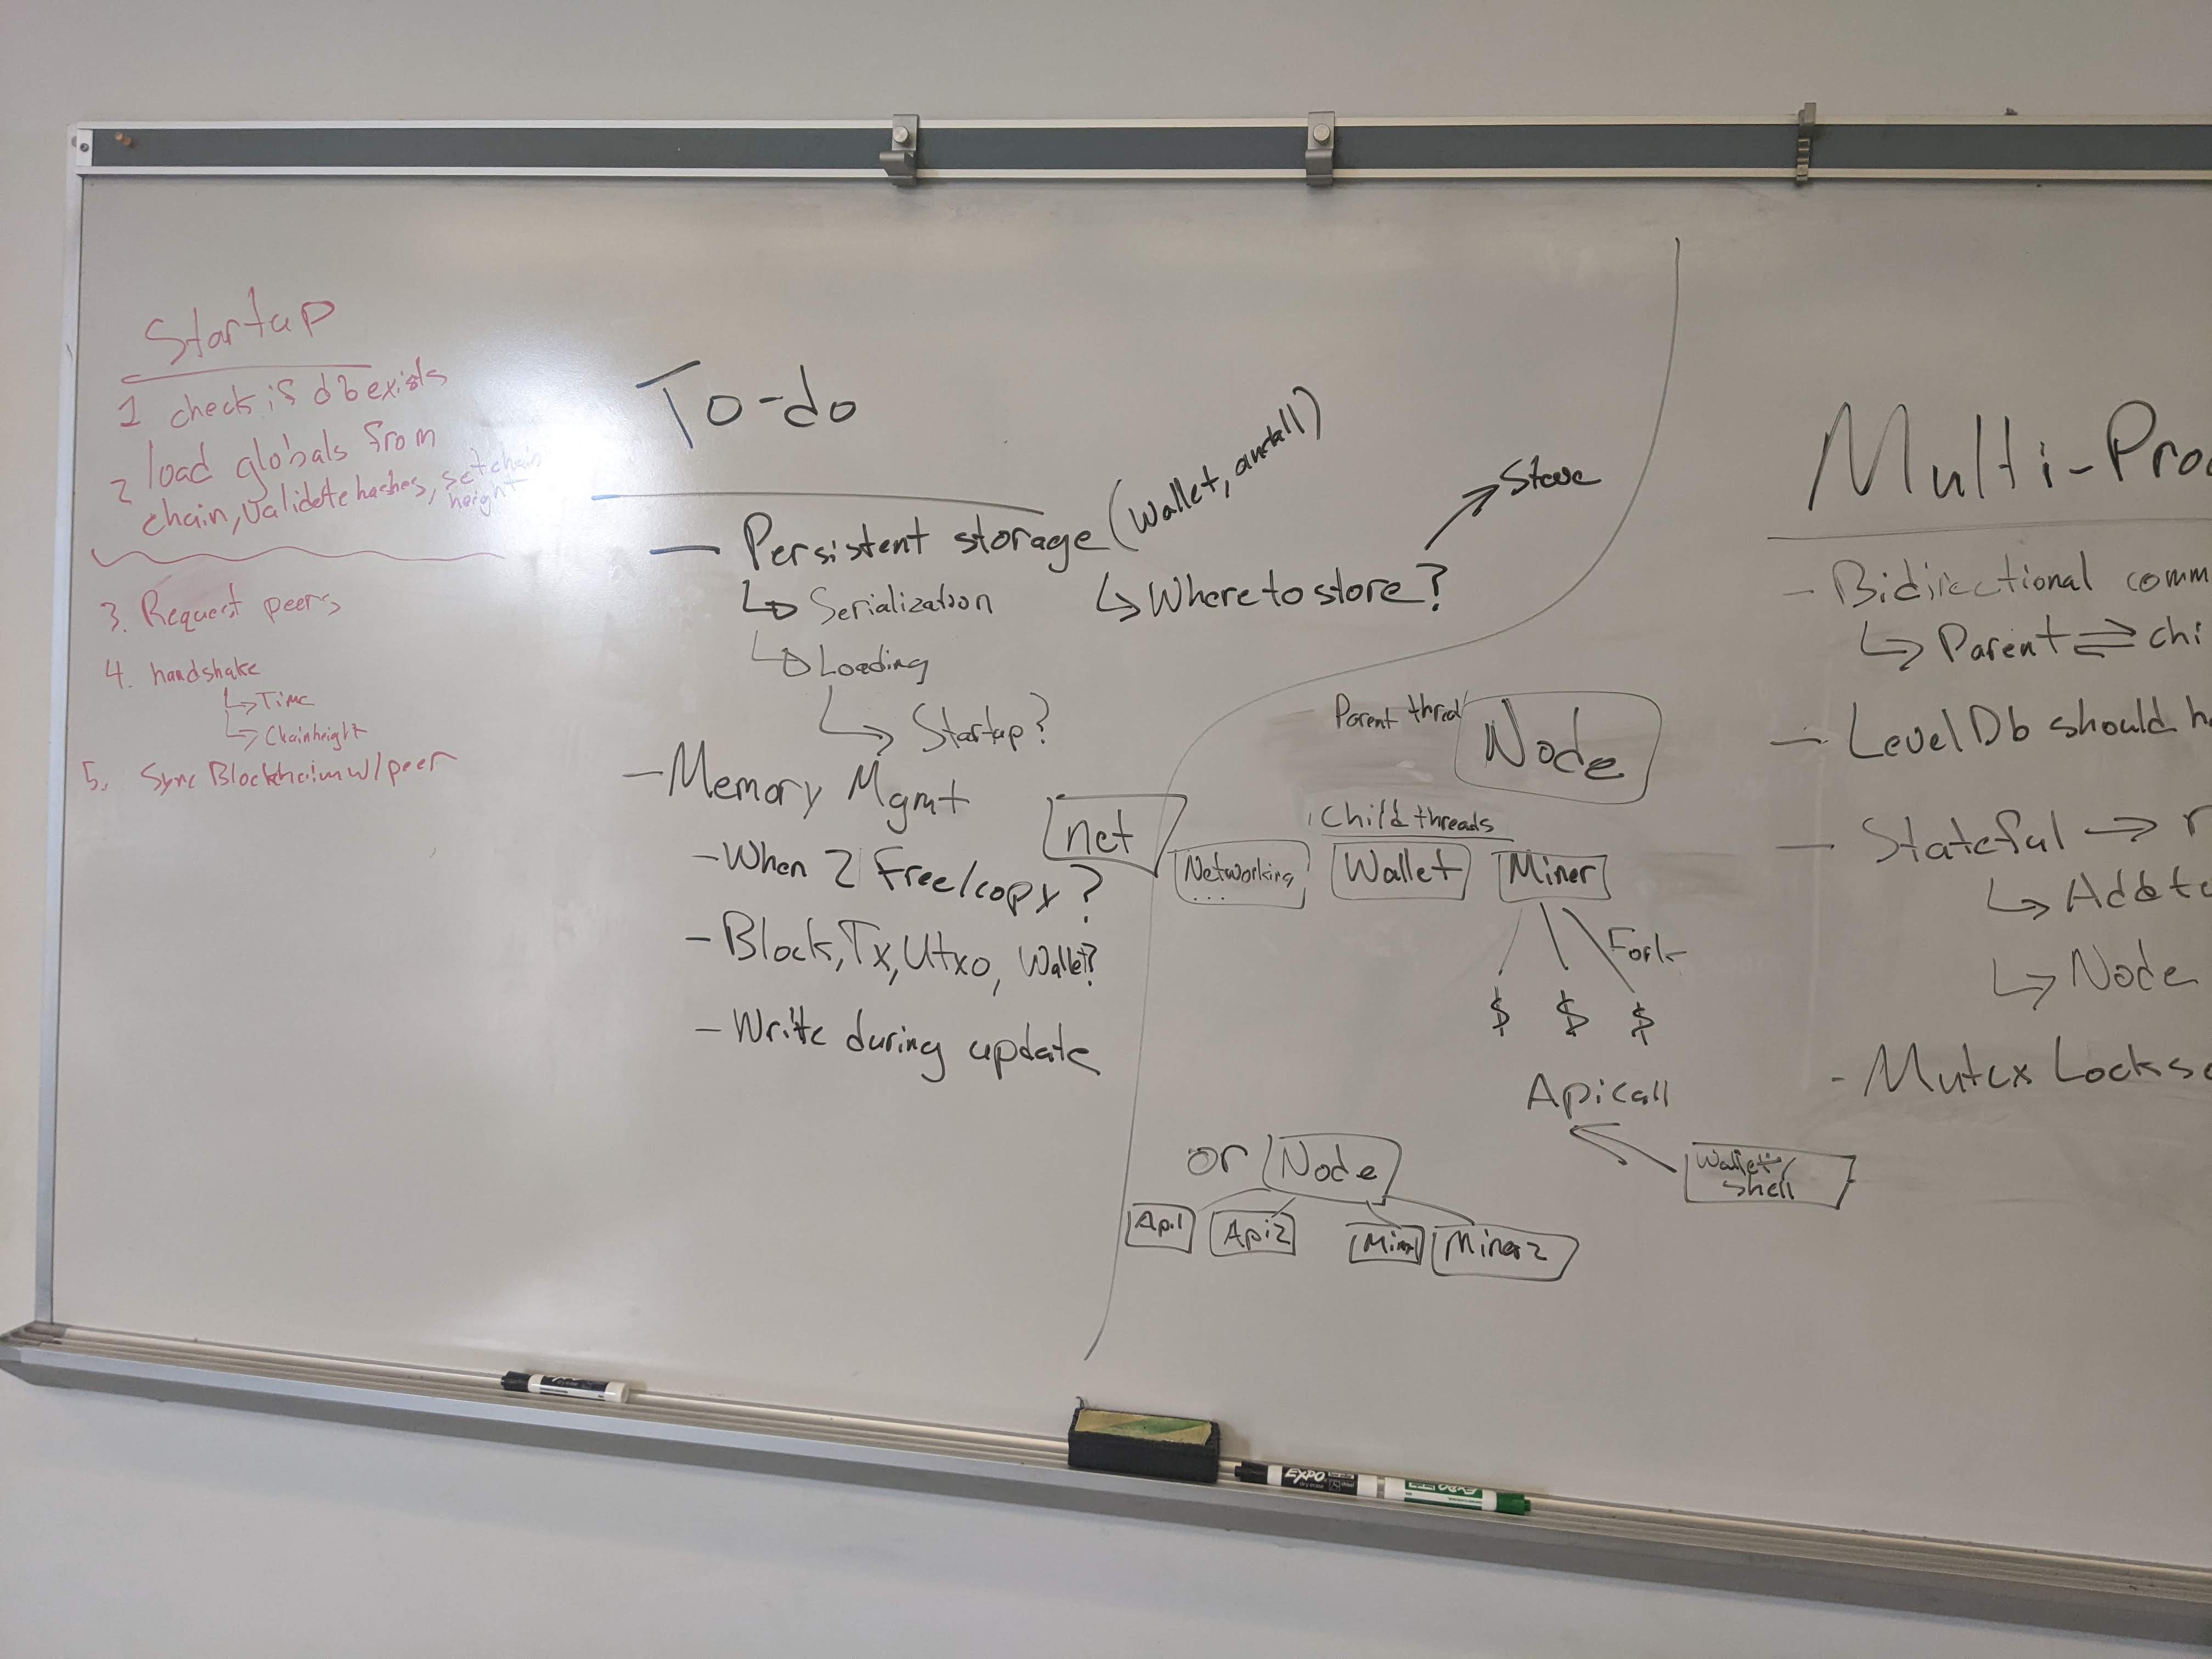 Startup
1 check if db exists
2 load globals from
chain, Validate hashes, set chain
height
3. Request peers
4. handshake
↳ Time
↳ Chainheight
5. Sync Blockchain w/peer
To-do
— Persistent storage (Wallet,
↳ Serialization
↳ Loading
↳ Startup?
↳ Where to store?
- Memory Mgmt
- When 2 Free/copy?
- Block, Tx, Utxo, Wallet?
- Write during update
Parent thred
Node
Child threads
net
Networking
...
Wallet
Miner
Fork
$ $ $
Api call
Wallet/
shell
or Node
Api1
Api2
Miner2
Multi-Proc
- Bidirectional comm
↳ Parent ⇌ chi
- LevelDb should h
- Stateful → r
↳ Add t
↳ Node
- Mutex Locks
EXPO